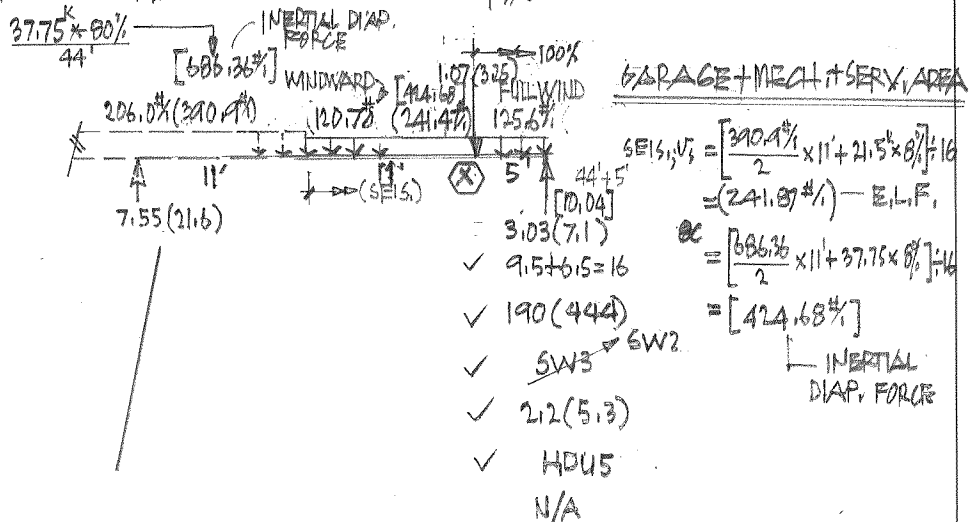 37.75ᴷ × 80%
44'
INERTIAL DIAP. FORCE
[686.36#/']
206.0#/'(390.9#/')
WINDWARD
120.7#
[424.68#/']
(241.4#/')
1.07(3.25)
100%
FULL WIND
125.6#/'
11'
(SEIS.)
X
5'
44'+5'
7.55(21.6)
[10.04]
3.03(7.1)
✓ 9.5+6.5=16
✓ 190(444)
✓ SW3 SW2
✓ 2.2(5.3)
✓ HDU5
N/A
GARAGE+MECH.+SERV. AREA
SEIS., Vs = [390.9#/' / 2 × 11' + 21.5ᴷ × 8%] ÷ 16
= (241.87#/') — E.L.F.
= [686.36 / 2 × 11' + 37.75 × 8%] ÷ 16
= [424.68#/']
INERTIAL
DIAP. FORCE